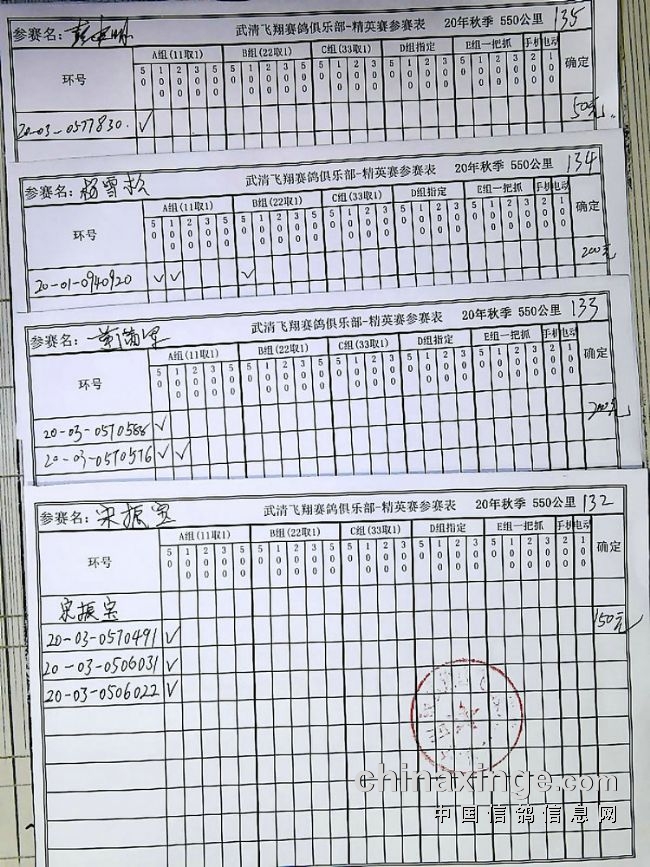 参赛名: 武清飞翔赛鸽俱乐部-精英赛参赛表 20年秋季 550公里 135
环号 A组(11取1) B组(22取1) C组(33取1) D组指定 E组一把抓 手机 电动 确定
50 100 200 300 500 50 100 200 300 500 50 100 200 300 50 100 200 300 50 100 200 300 20 100
20-03-0577830 ✓ 50元
参赛名: 杨雪松 武清飞翔赛鸽俱乐部-精英赛参赛表 20年秋季 550公里 134
环号 A组(11取1) B组(22取1) C组(33取1) D组指定 E组一把抓 手机 电动 确定
50 100 200 300 500 50 100 200 300 500 50 100 200 300 50 100 200 300 50 100 200 300 20 100
20-01-0940920 ✓ ✓ ✓ 200元
参赛名: 武清飞翔赛鸽俱乐部-精英赛参赛表 20年秋季 550公里 133
环号 A组(11取1) B组(22取1) C组(33取1) D组指定 E组一把抓 手机 电动 确定
50 100 200 300 500 50 100 200 300 500 50 100 200 300 50 100 200 300 50 100 200 300 20 100
20-03-0570588 ✓ 200元
20-03-0570576 ✓ ✓
参赛名: 宋振宝 武清飞翔赛鸽俱乐部-精英赛参赛表 20年秋季 550公里 132
环号 A组(11取1) B组(22取1) C组(33取1) D组指定 E组一把抓 手机 电动 确定
50 100 200 300 500 50 100 200 300 500 50 100 200 300 50 100 200 300 50 100 200 300 20 100
宋振宝 150元
20-03-0570491 ✓
20-03-0506031 ✓
20-03-0506022 ✓
chinaxinge.com
中国信鸽信息网